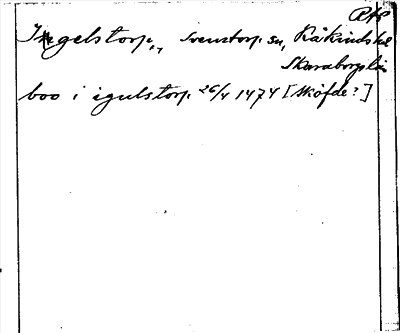 RAP
Ingelstorp, Svenstorp sn, Kåkinds hd
Skaraborgs län
boo i igulstorp 26/4 1474 [Sköfde?]